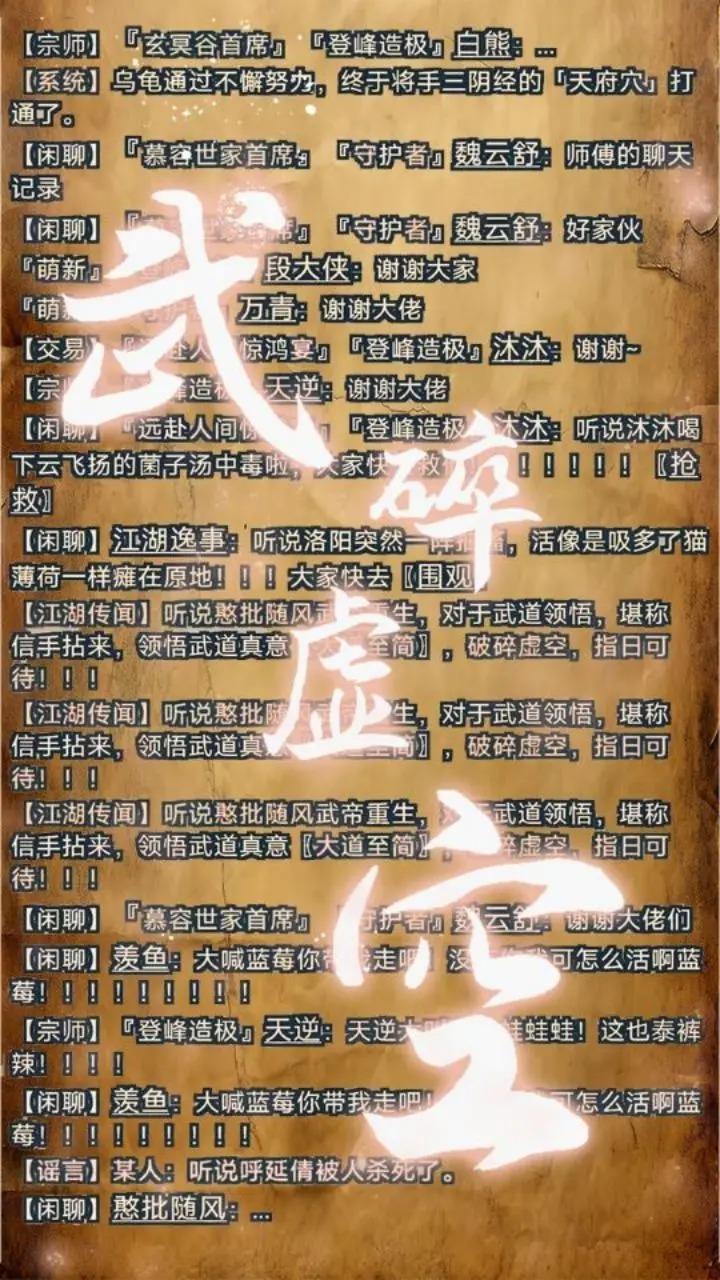 【宗师】『玄冥谷首席』『登峰造极』白熊：...
【系统】乌龟通过不懈努力，终于将手三阴经的「天府穴」打
通了。
【闲聊】『慕容世家首席』『守护者』魏云舒：师傅的聊天
记录
【闲聊】『 席』『守护者』魏云舒：好家伙
『萌新』 段大侠：谢谢大家
『萌 万青：谢谢大佬
【交易】 赴人 惊鸿宴』『登峰造极』沐沐：谢谢~
【宗 峰造极 天逆：谢谢大佬
【闲 『远赴人间惊 』『登峰造极 沐沐：听说沐沐喝
下云飞扬的菌子汤中毒啦， 大家快 救 ！！！！！！〖抢
救〗
【闲聊】江湖逸事：听说洛阳突然一阵 ，活像是吸多了猫
薄荷一样瘫在原地！！！大家快去〖围观
【江湖传闻】听说憨批随风武 重生，对于武道领悟，堪称
信手拈来，领悟武道真意 至简〗，破碎虚空，指日可
待！！！
【江湖传闻】听说憨批随风 生，对于武道领悟，堪称
信手拈来，领悟武道真意 道至简〗，破碎虚空，指日可
待！！！
【江湖传闻】听说憨批随风武帝重生，对于武道领悟，堪称
信手拈来，领悟武道真意〖大道至简〗， 碎虚空，指日可
待！！！
【闲聊】『慕容世家首席』 守护者』魏云舒：谢谢大佬们
【闲聊】羡鱼：大喊蓝莓你带我走吧 没 可怎么活啊蓝
莓！！！！！！！！！
【宗师】『登峰造极』天逆：天逆大 哇蛙蛙！这也泰裤
辣！！！！
【闲聊】羡鱼：大喊蓝莓你带我走吧！ 可怎么活啊蓝
莓！！！！！！！！！
【谣言】某人：听说呼延倩被人杀死了。
【闲聊】憨批随风：...
武
碎
虚
空